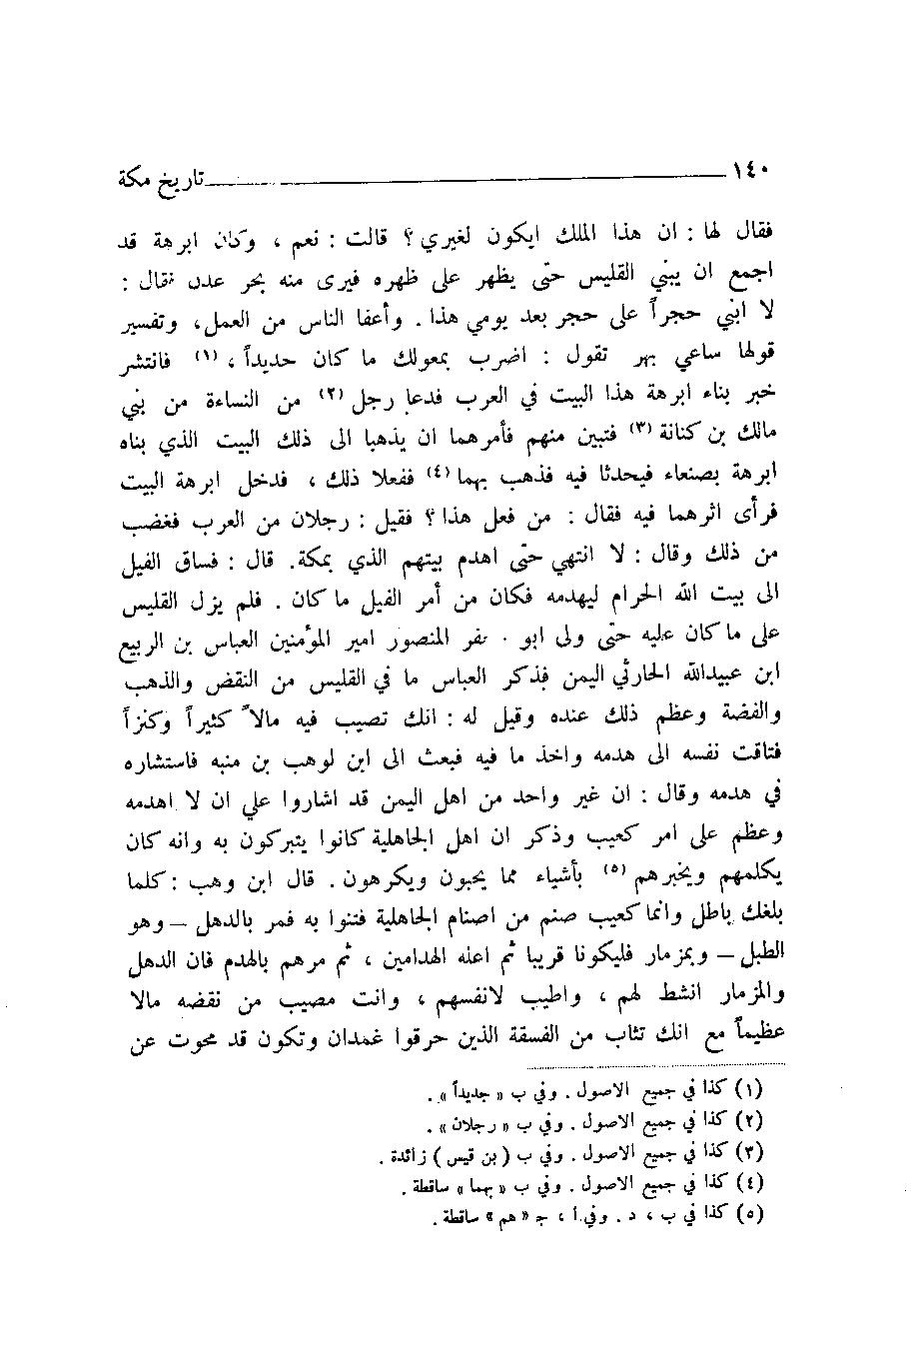 ١٤٠ تاريخ مكة
فقال لها : ان هذا الملك ايكون لغيري ؟ قالت : نعم ، وكان ابرهة قد
اجمع ان يبني القليس حتى يظهر على ظهره فيرى منه بحر عدن فقال :
لا ابني حجراً على حجر بعد يومي هذا . وأعفا الناس من العمل، وتفسير
قولها ساعي بهر تقول : اضرب بمعولك ما كان حديداً ، (١) فانتشر
خبر بناء ابرهة هذا البيت في العرب فدعا رجل (٢) من النساءة من بني
مالك بن كنانة (٣) فتبين منهم فأمرهما ان يذهبا الى ذلك البيت الذي بناه
ابرهة بصنعاء فيحدثا فيه فذهب بهما (٤) ففعلا ذلك ، فدخل ابرهة البيت
فرأى اثرهما فيه فقال : من فعل هذا ؟ فقيل : رجلان من العرب فغضب
من ذلك وقال : لا انتهي حتى اهدم بيتهم الذي بمكة. قال : فساق الفيل
الى بيت الله الحرام ليهدمه فكان من أمر الفيل ما كان . فلم يزل القليس
على ما كان عليه حتى ولى ابو المنصور امير المؤمنين العباس بن الربيع
ابن عبيدالله الحارثي اليمن فذكر العباس ما في القليس من النقض والذهب
والفضة وعظم ذلك عنده وقيل له : انك تصيب فيه مالاً كثيراً وكنزاً
فتاقت نفسه الى هدمه واخذ ما فيه فبعث الى ابن لوهب بن منبه فاستشاره
في هدمه وقال : ان غير واحد من اهل اليمن قد اشاروا علي ان لا اهدمه
وعظم على امر كعيب وذكر ان اهل الجاهلية كانوا يتبركون به وانه كان
يكلمهم ويخبرهم (٥) بأشياء مما يحبون ويكرهون . قال ابن وهب : كلما
بلغك باطل وانما كعيب صنم من اصنام الجاهلية فتنوا به فمر بالدهل – وهو
الطبل – وبمزمار فليكونا قريبا ثم اعله الهدامين ، ثم مرهم بالهدم فان الدهل
والمزمار انشط لهم ، واطيب لانفسهم ، وانت مصيب من نقضه مالا
عظيماً مع انك تثاب من الفسقة الذين حرقوا غمدان وتكون قد محوت عن
(١) كذا في جميع الاصول . وفي ب « جديداً » .
(٢) كذا في جميع الاصول . وفي ب « رجلان » .
(٣) كذا في جميع الاصول . وفي ب ( بن قيس ) زائدة .
(٤) كذا في جميع الاصول . وفي ب « بهما » ساقطة .
(٥) كذا في ب ، د . وفي أ ، ج « هم » ساقطة .